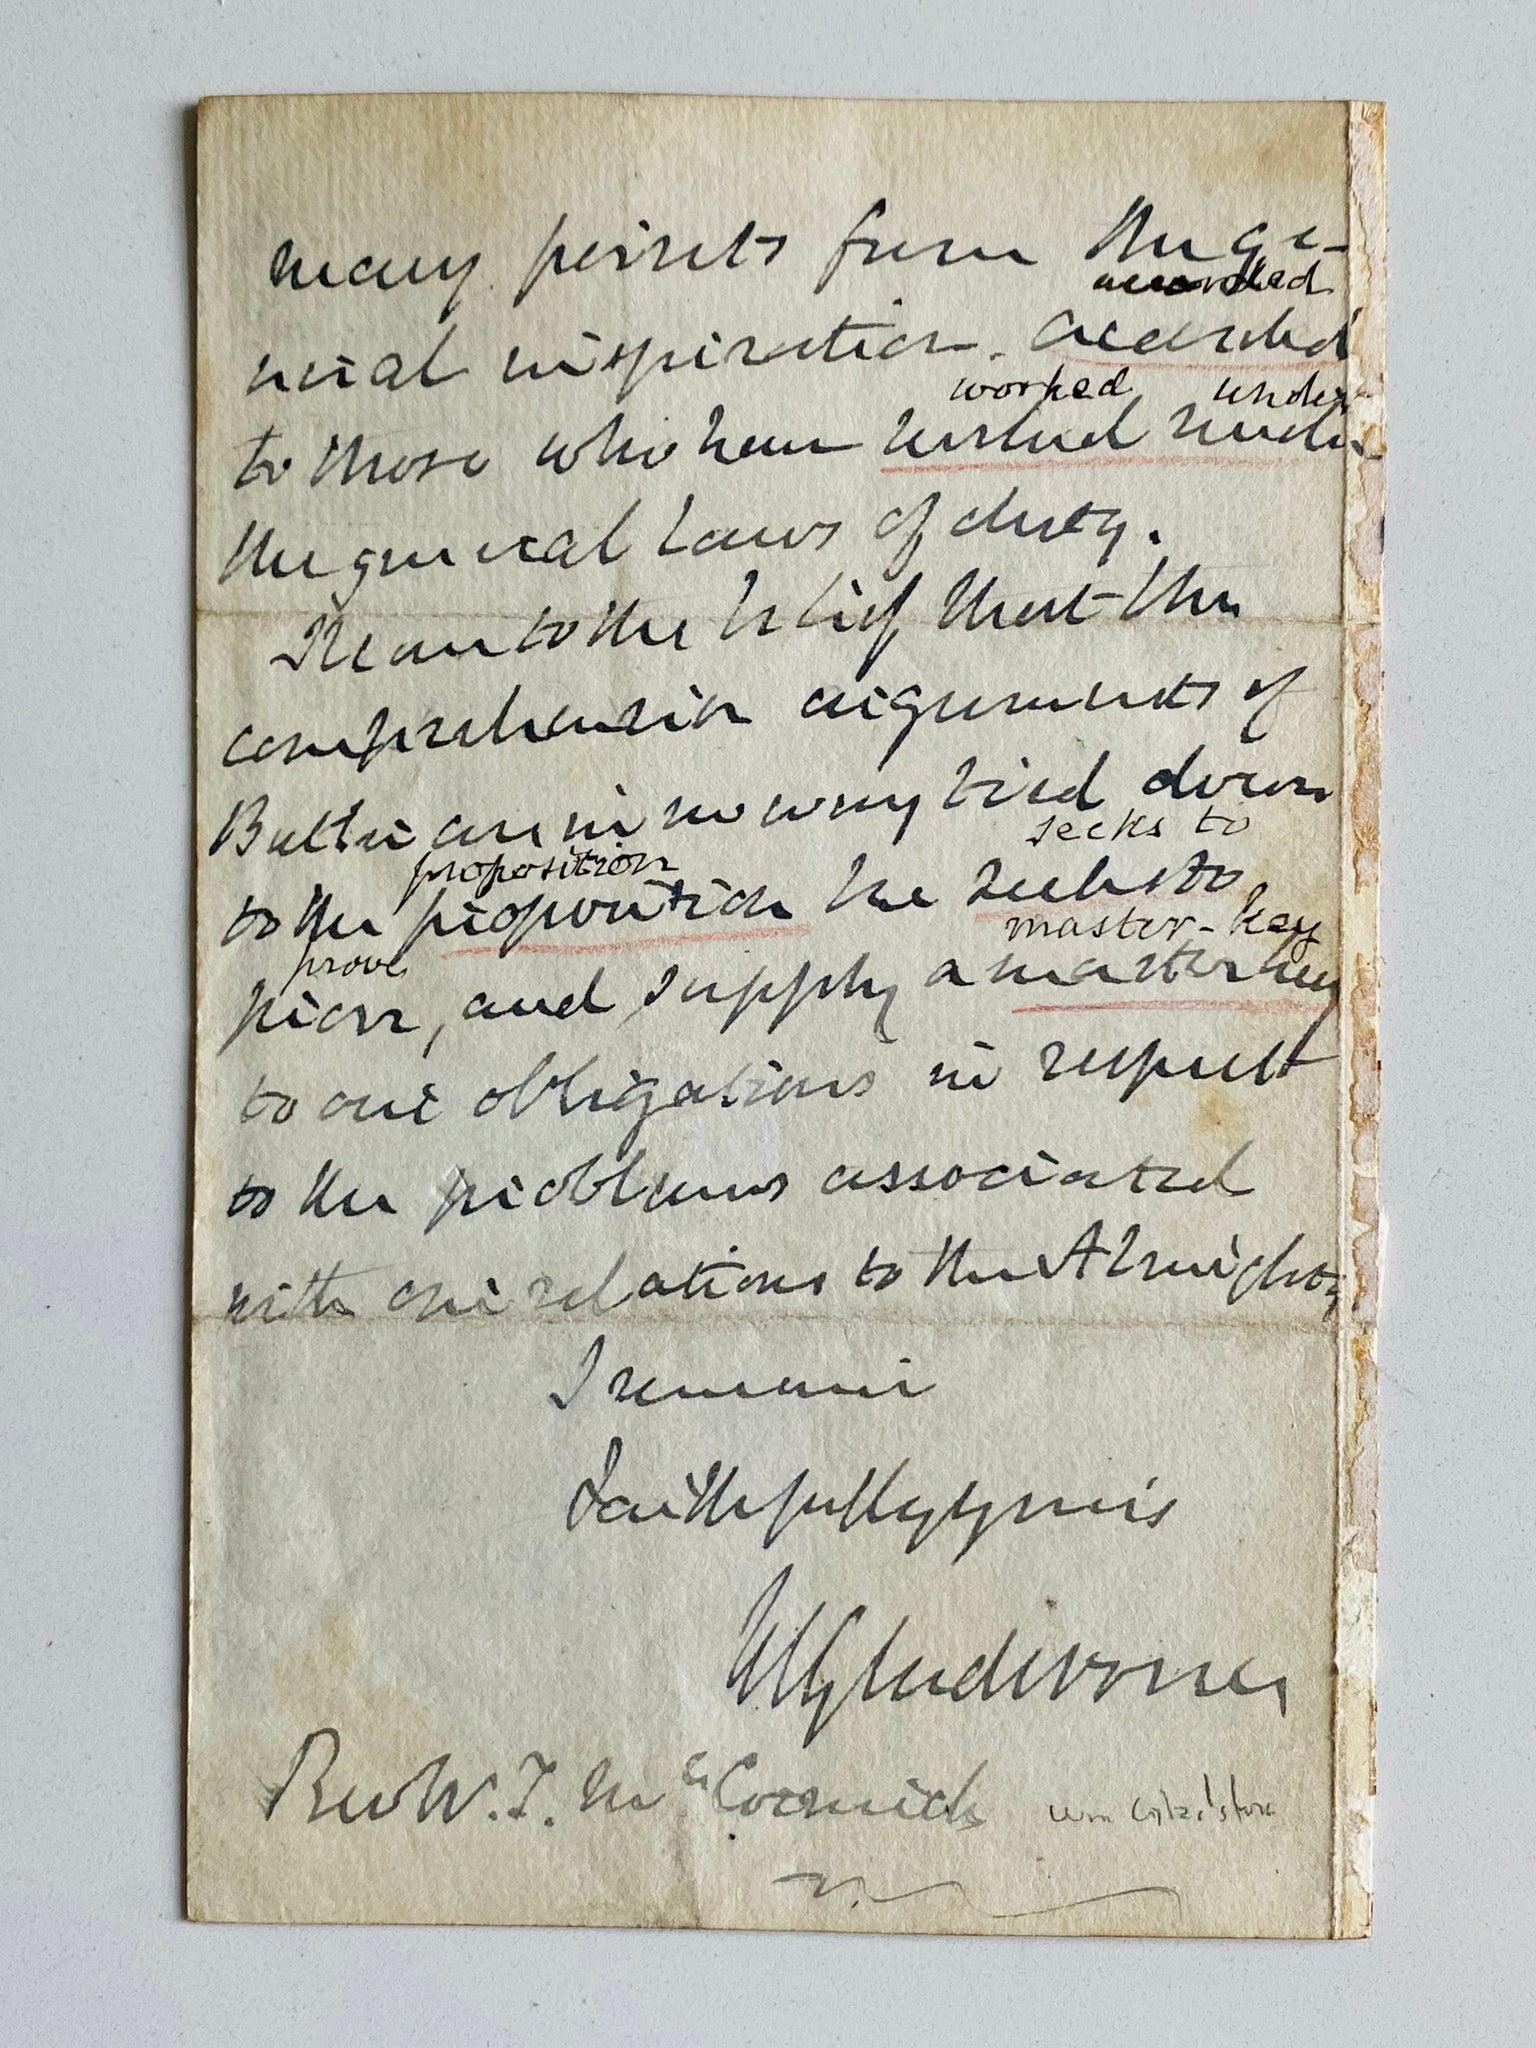 many points from the ge-
accorded
neral inspiration accorded
worked under
to those who have worked under
the general laws of duty.
I lean to the belief that the
comprehensive arguments of
Butler are in no way tied down
seeks to
proposition
to the proposition he seeks to
master-key
prove
prove, and supply a master key
to our obligations in respect
to the problems associated
with our relations to the Almighty
I remain
Faithfully yours
WEGladstone
Rev W. T. McCormick
Wm Gladstone